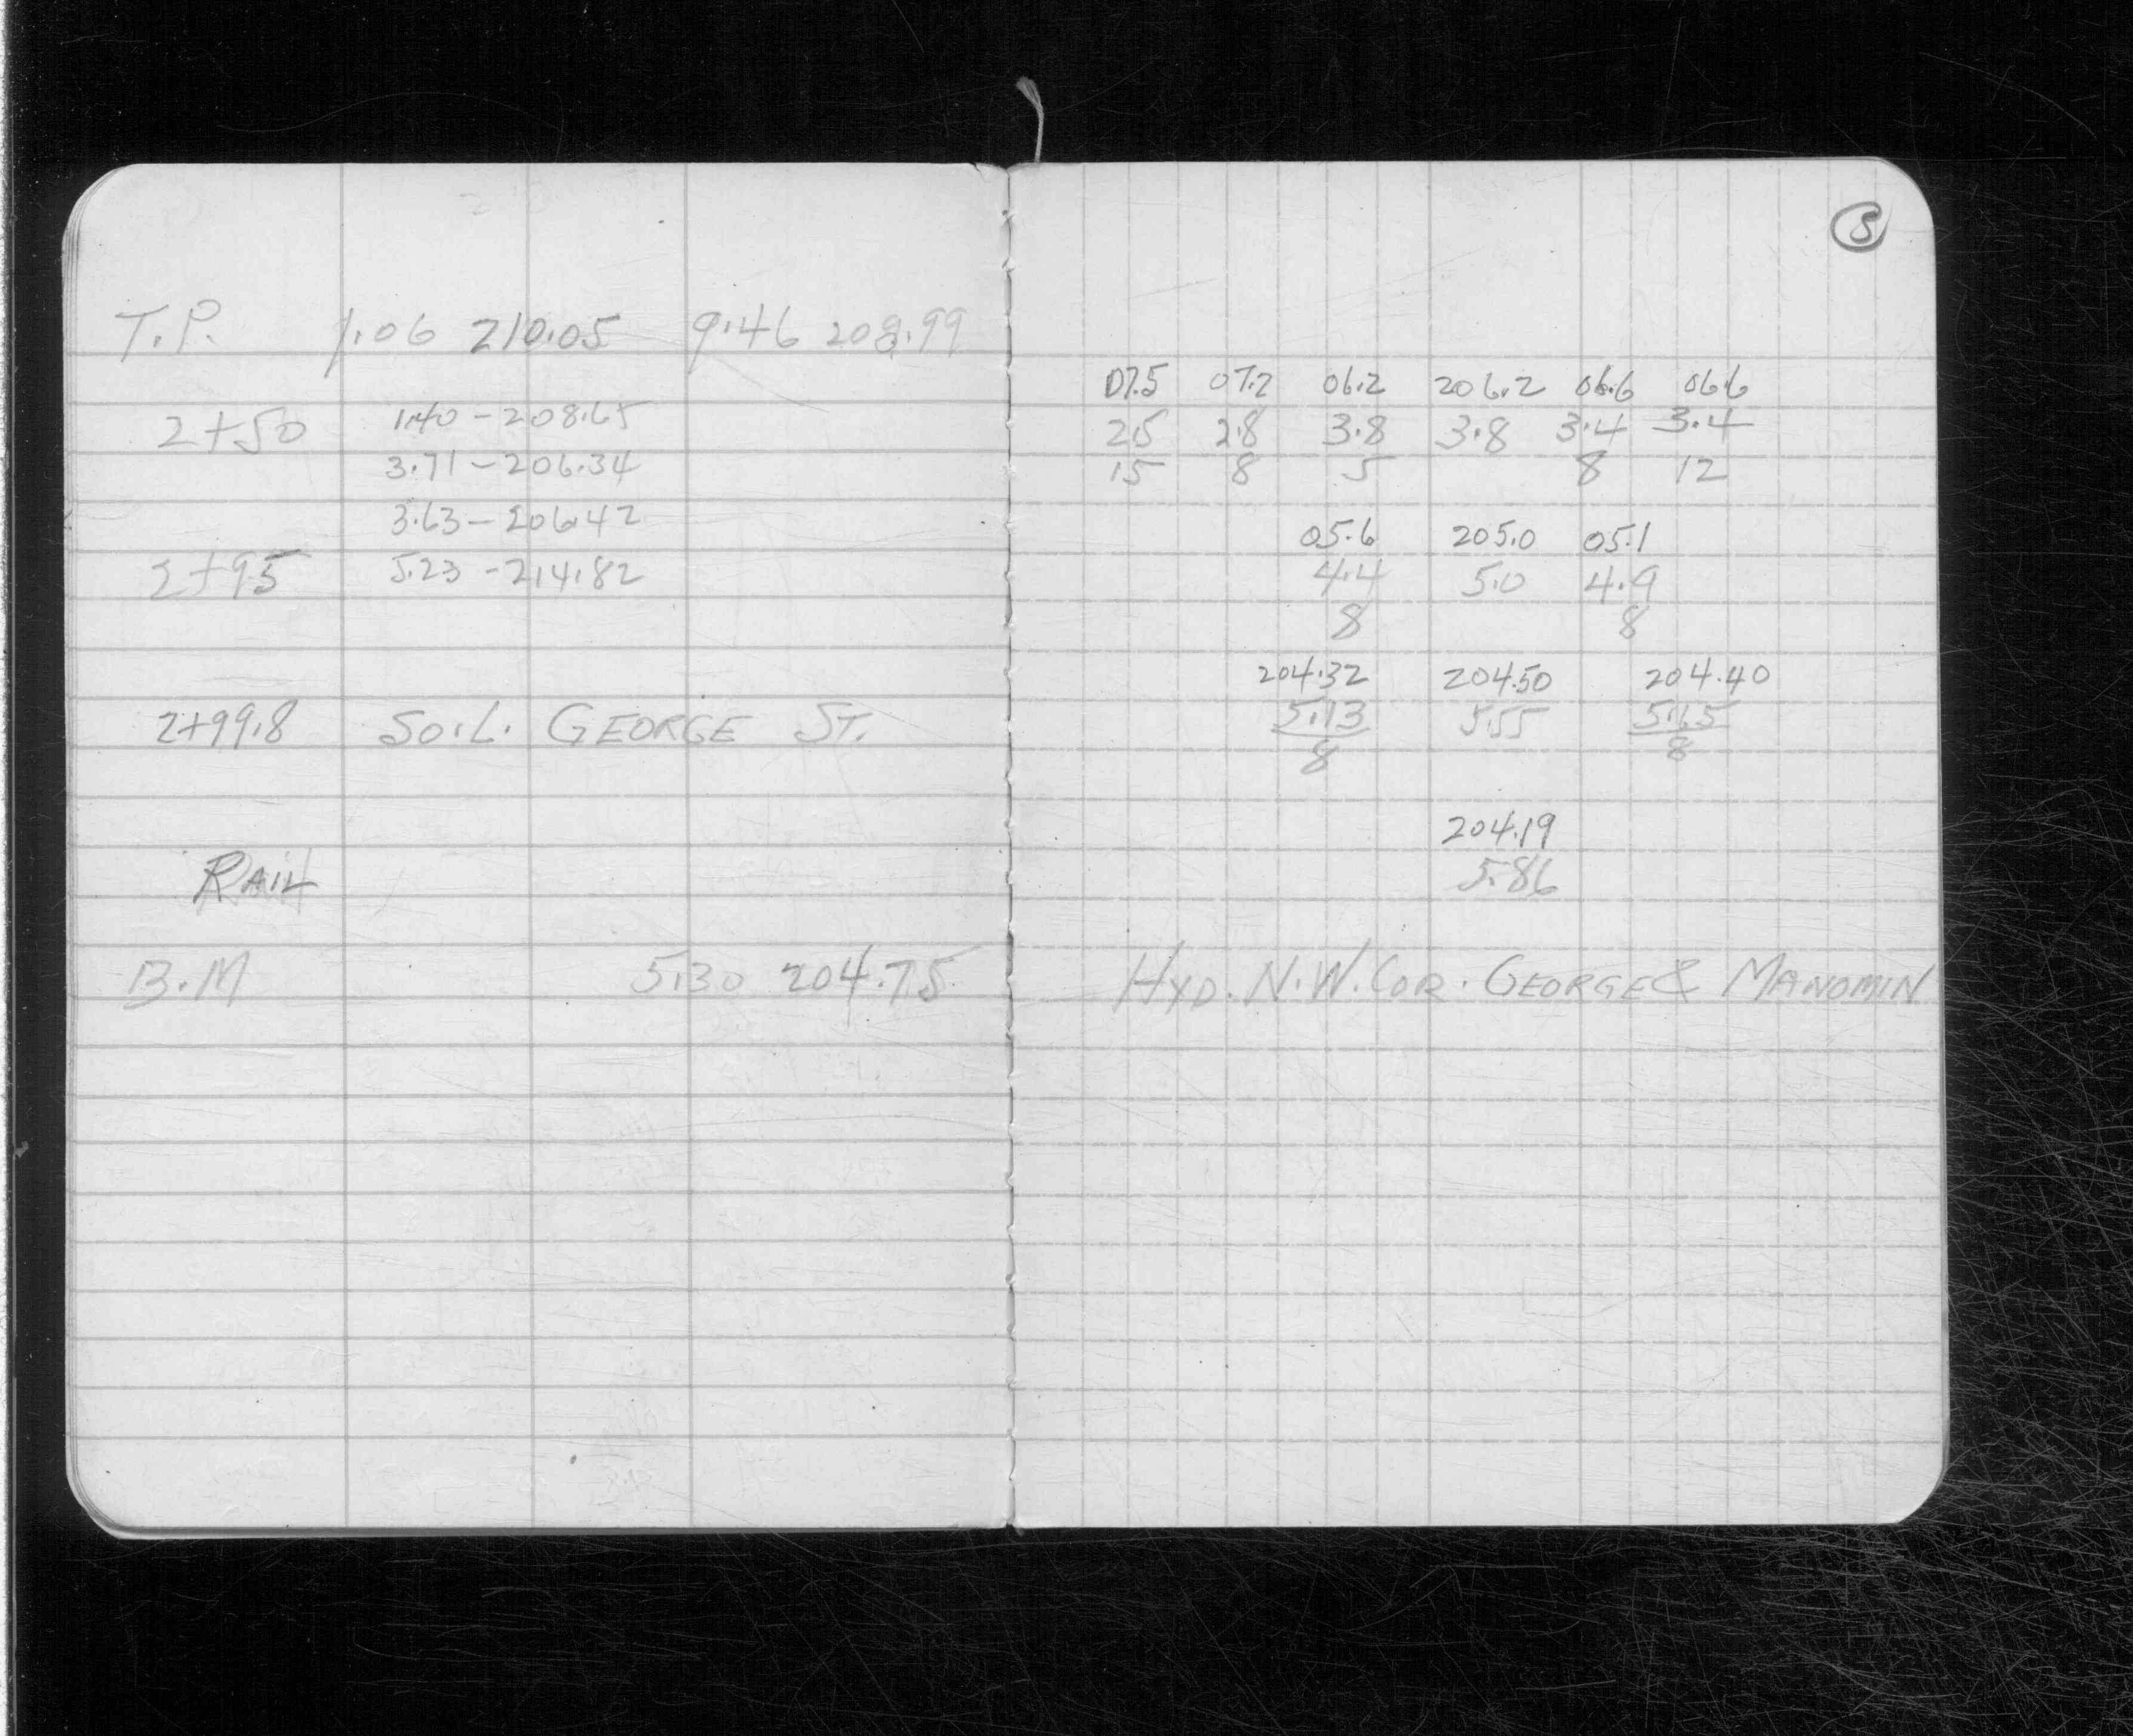 T.P. 1.06 210.05 9.46 208.99
2+50 1.40 - 208.65
3.71 - 206.34
3.63 - 206.42
2+95 5.23 - 214.82
2+99.8 So.L. GEORGE ST.
RAIL
B.M 5.30 204.75
5
07.5 07.2 06.2 206.2 06.6 06.6
2.5 2.8 3.8 3.8 3.4 3.4
15 8 5 8 12
05.6 205.0 05.1
4.4 5.0 4.9
8 8
204.32 204.50 204.40
5.73 5.55 5.65
8 8
204.19
5.86
HYD. N.W. COR. GEORGE & MANOMIN